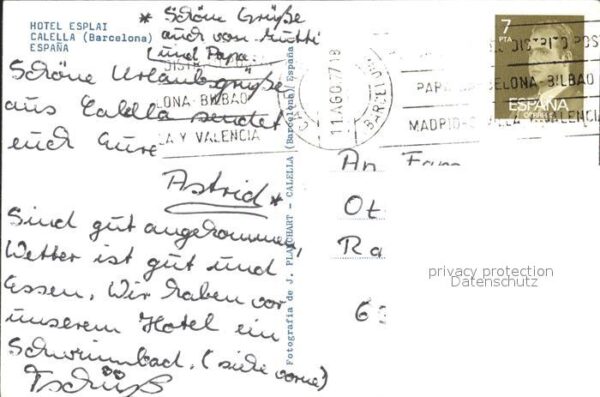 HOTEL ESPLAI
CALELLA (Barcelona)
ESPAÑA
* Schöne Grüße
auch von Mutti
und Papa.
Schöne Urlaubsgrüße
aus Calella sendet
euch Eure
Astrid *
Sind gut angekommen,
Wetter ist gut und
Essen. Wir haben vor
unserem Hotel ein
Schwimmbad. (siehe vorne)
Tschüß
Fotografía de J. PLANCHART - CALELLA (Barcelona) España
LONA-BILBAO
LA Y VALENCIA
11 AGO 77 18
BARCELONA
PARA BARCELONA-BILBAO
MADRID-SEVILLA Y VALENCIA
7
PTA
ESPAÑA
CORREOS
An Fam
Ot
Ra
6
privacy protection
Datenschutz